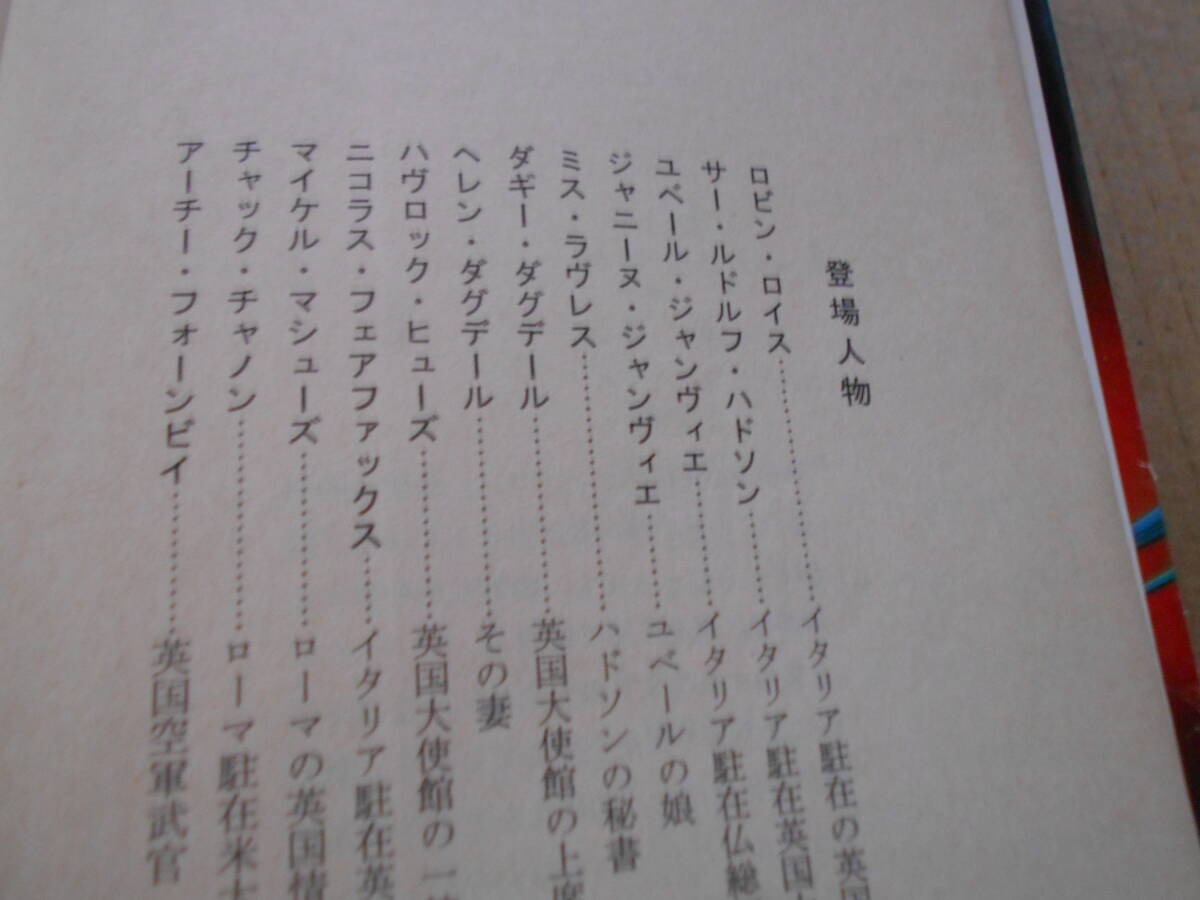 登場人物
ロビン・ロイス……………………イタリア駐在の英国
サー・ルドルフ・ハドソン………イタリア駐在英国
ユベール・ジャンヴィエ…………イタリア駐在仏総
ジャニーヌ・ジャンヴィエ………ユベールの娘
ミス・ラヴレス……………………ハドソンの秘書
ダギー・ダグデール………………英国大使館の上席
ヘレン・ダグデール………………その妻
ハヴロック・ヒューズ……………英国大使館の一
ニコラス・フェアファックス……イタリア駐在英
マイケル・マシューズ……………ローマの英国情
チャック・チャノン………………ローマ駐在米大
アーチー・フォーンビイ…………英国空軍武官